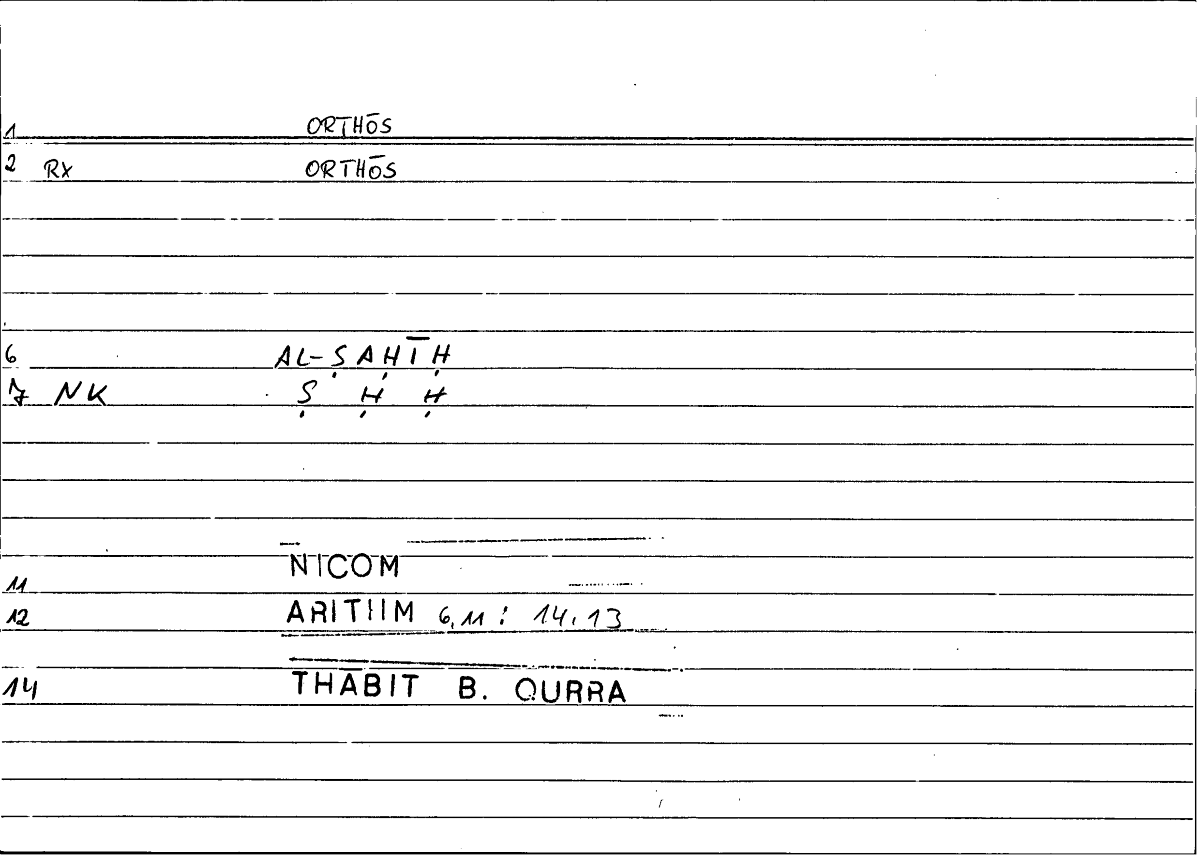 1 ORTHŌS
2 RX ORTHŌS
6 AL-ṢAḤĪḤ
7 NK Ṣ Ḥ Ḥ
11 NICOM
12 ARITIIM 6,11 : 14,13
14 THABIT B. QURRA